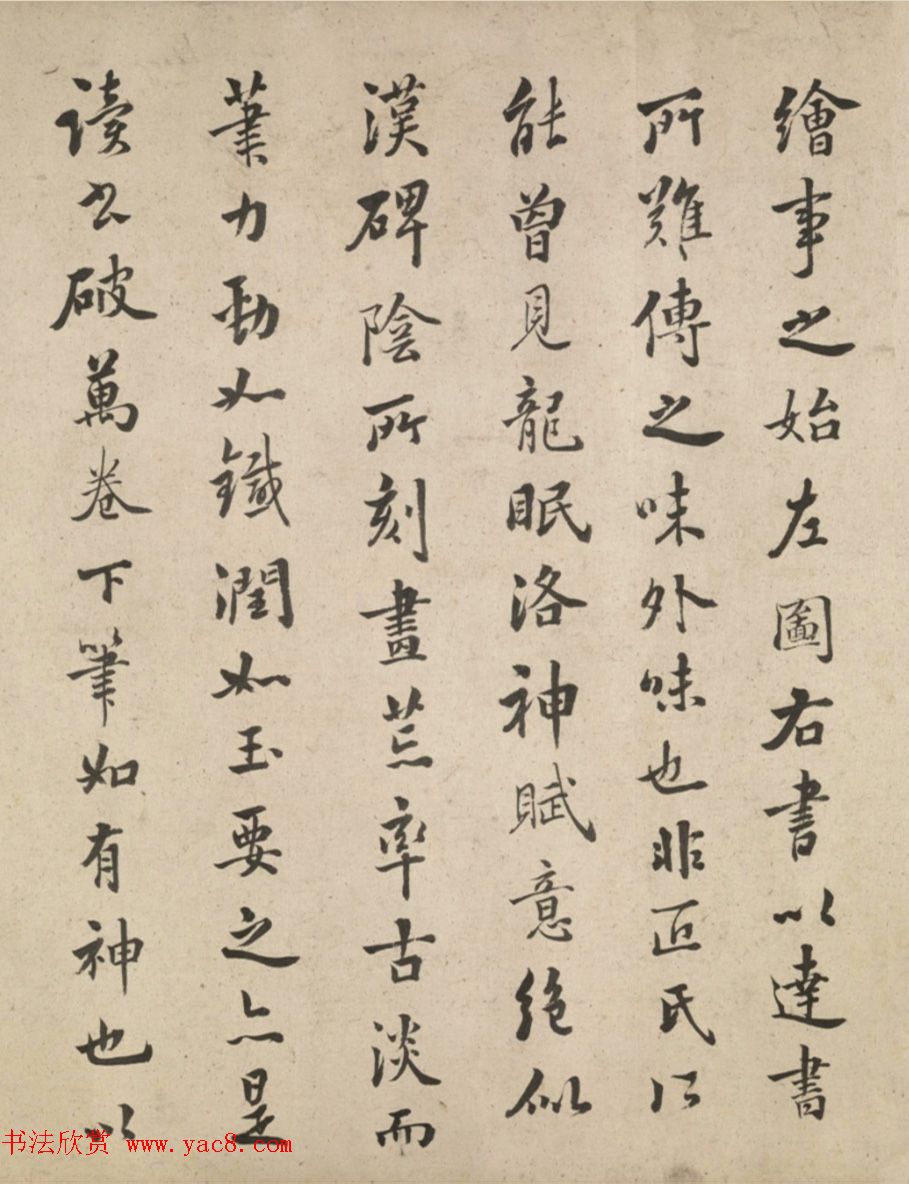 繪事之始左圖右書以達書
所難傳之味外味也非匠氏所
能曾見龍眠洛神賦意絕似
漢碑陰所刻畫荒率古淡而
筆力勁如鐵潤如玉要之亦是
读书破萬卷下筆如有神也以
书法欣赏 www.yac8.com